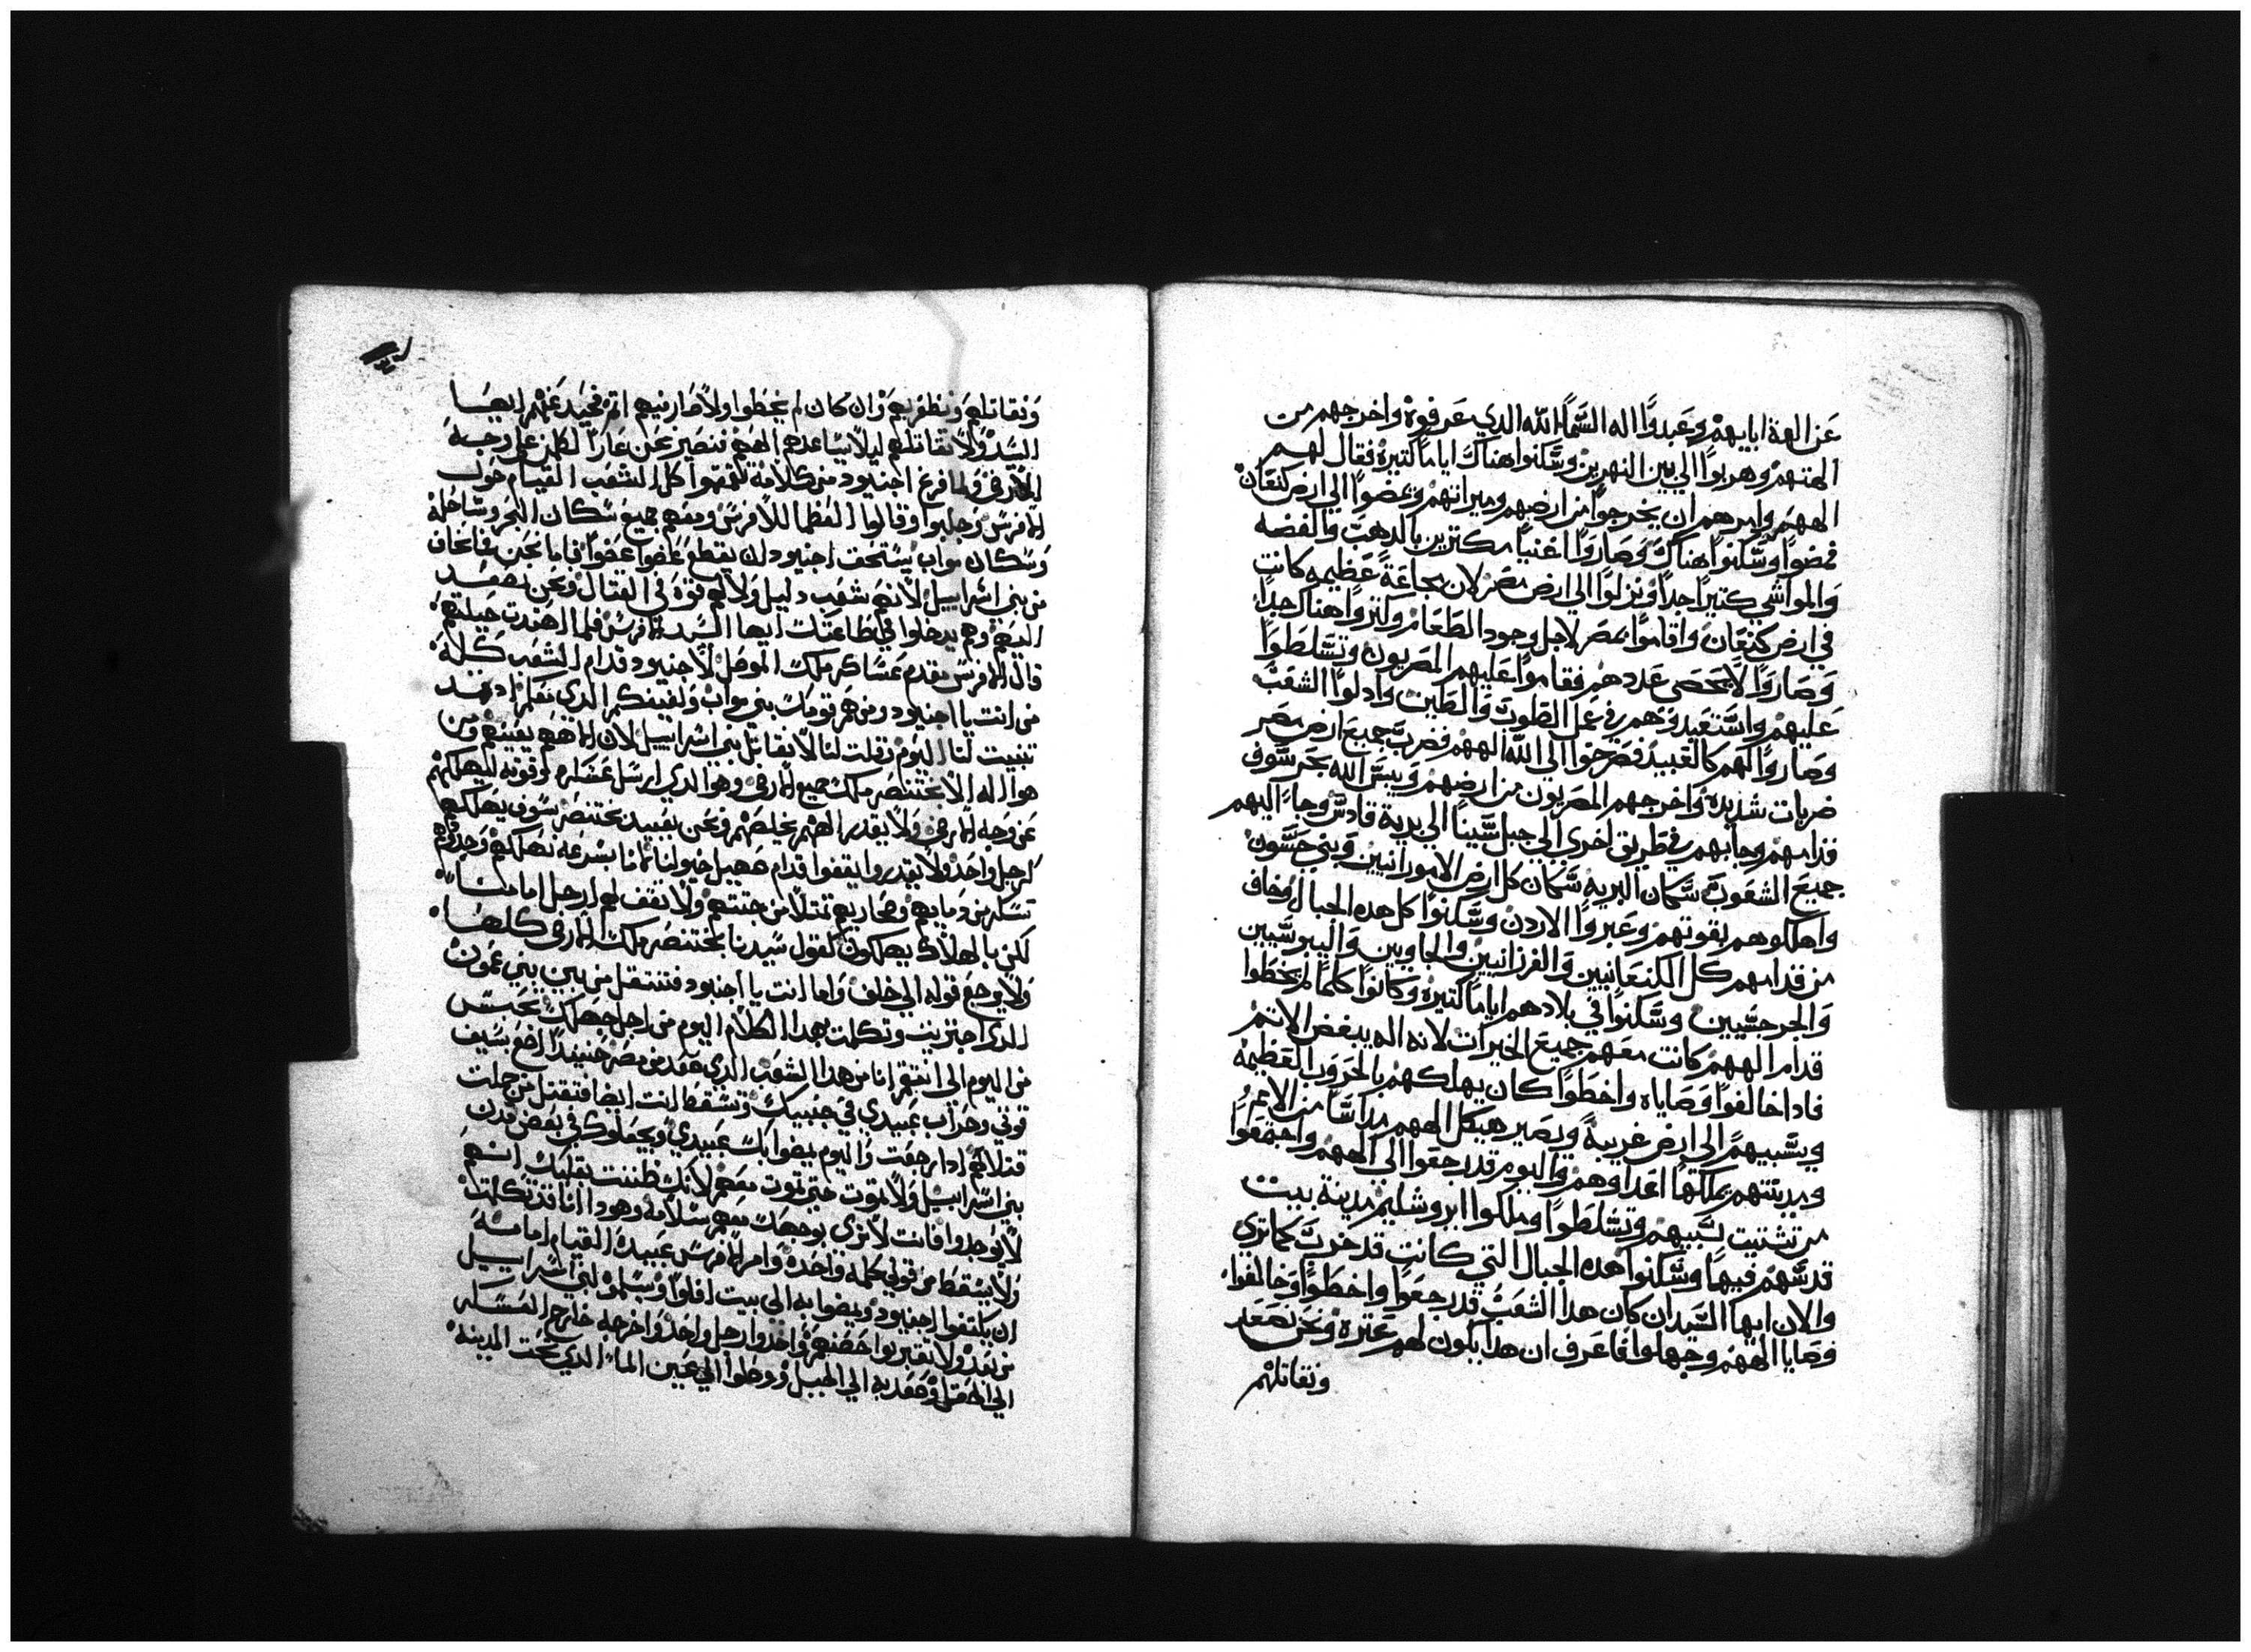 عن الهة ابايهم وعبدوا اله السما الله الدي عرفوه واخرجهم من
الهتهم وهربوا الي بين النهرين وسكنوا هناك اياما كتيره فقال لهم
الههم وامرهم ان يخرجوا من ارضهم وميراتهم ويمضوا الي ارض كنعان
فمضوا وسكنوا هناك وصاروا اغنيا مكترين بالدهب والفضه
والمواشي كتيرا جدا ونزلوا الي ارض مصر لان مجاعة عظيمه كانت
في ارض كنعان واقاموا بمصر لاجل وجود الطعام وكتروا هناك جدا
وصاروا لا يحصي عددهم فقاموا عليهم المصريون وتسلطوا
عليهم واستعبدوهم في عمل الطوب والطين وادلوا الشعب
وصاروا لهم كالعبيد فصرخوا الي الله الههم فضرب جميع ارض مصر
ضربات شديده واخرجهم المصريون من ارضهم ويبس الله بحر سوف
قدامهم وجابهم في طريق اخري الي جبل سينا الي برية قادس وجا اليهم
جميع الشعوب سكان البريه سكان كل ارض الامورانيين وبني حسون
واهلكوهم بقوتهم وعبروا الاردن وسكنوا كل هده الجبال وخاف
من قدامهم كل الكنعانيين والفرزانيين والحاويين واليبوسيين
والجرجسيين وسكنوا في بلادهم اياما كتيره وكانوا كلما لم يخطوا
قدام الههم كانت معهم جميع الخيرات لانه اله يبغض الاتم
فادا خالفوا وصاياه واخطوا كان يهلكهم بالحروب العظيمه
ويسبيهم الي ارض غريبة ويصير هيكل الههم مداسا من الامم
ومدينتهم يملكها اعداوهم واليوم قد رجعوا الي الههم واجتمعوا
من تشتيت سبيهم وتسلطوا وملكوا ايروشليم مدينة بيت
قدسهم فيها وسكنوا هده الجبال التي كانت قد خربت كما تري
والان ايها السيد ان كان هدا الشعب قد رجعوا واخطوا وخالفوا
وصايا الههم وجهلوا فاعرف ان هدا يكون لهم عتره ونحن نصعد
ونقاتلهم
ونقاتلهم ونظفر بهم وان كان لم يخطوا ولا صار فيهم اتم فحيد عنهم ايها
السيد ولا تقاتلهم ليلا يساعدهم الههم فنصير نحن عارا لكلمن علي وجه
الارض ولما فرغ اجنيود من كلامه تقمقموا كل الشعب القيام حول
الافرنس وجلبوا وقالوا العظما للافرنس ومعهم جميع سكان البحر وساحله
وسكان مواب يستحق اجنيود ان يقطع عضوا عضوا فاما نحن فانخاف
من بني اسراييل لانهم شعب دليل ولا لهم قوة في القتال ونحن نصعد
اليهم وهم يدخلوا في طاعتك ايها السيد الافرنس فلما اهتدت حيلتهم
قال الافرنس مقدم عساكر ملك الموصل لاجنيود قدام الشعب كله
من انت يا اجنيود ومن هم قومك بني مواب ولفيفكم الدي نقلم اد قد
تنبيت لنا اليوم وقلت لنا لا نقاتل بني اسراييل لان الاههم يعينهم ومن
هو اله الا بختنصر ملك جميع الارض وهو الدي ارسل عساكره بقوته ليهلكهم
عن وجه الارض ولا يقدر الههم يخلصهم ونحن عبيد بختنصر سوف يهلكهم
كرجل واحد ولا يقدروا يقفوا قدام صهيل خيولنا فانا بسرعه نهلكهم
تسكر من دمايهم وصحاريهم تمتلا من جتتهم ولا تقف لهم ارجل امامنا
لكن بالهلاك يهلكون كقول سيدنا بختنصر ملك الارض كلها
ولا يرجع قوله الي خلف واما انت يا اجنيود فتنتقل من بين بني عمون
الدي اجتريت وتكلمت بهدا الكلام اليوم من اجل جهلك تحبس
من اليوم الي انتقم انا من هدا الشعب الدي صعد من مصر حينيد ارفع بسيف
قوتي وحراب عبيدي في جنبيك وتسقط انت ايضا فتقتل من جملت
قتلاهم ادا رجعت واليوم يمضوا بك عبيدي ويجعلوك في بعض مدن
بني اسراييل ولا تموت حتي تموت معهم لانك ظننت بقلبك انهم
لا يوجدوا فانت لا تري بوجهك معهم سلامه وهودا انا قد تكلمت
ولا يسقط من قولي كلمه واحده وامر الافرنس عبيده القيام امامه
ان يكتفوا اجنيود ويمضوا به الي بيت افلوا ويسلموه لبني اسراييل
من بعد ولا يقتربوا حصنهم واخدوا رجل واحد واخرجه خارج العسكر
الي الحقل وصعد به الي الجبل ووصلوا الي عين الماء الدي تحت المدينه